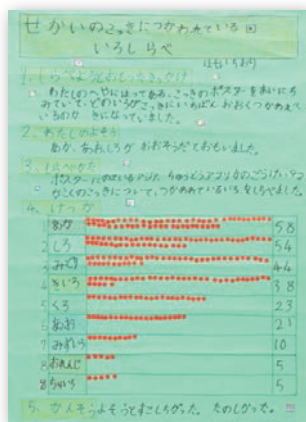 せかいのこっきにつかわれている
いろしらべ
1. しらべようとおもったきっかけ
わたしのへやにはってある、こっきのポスターをまいにち
みていて、どのいろがこっきにいちばんおおくつかわれて
いるのか きになっていました。
2. わたしのよそう
あか、あお、しろが おおそうだとおもいました。
3. しらべかた
ポスターにのっている
かこくのこっきについて、つかわれているいろをしらべました。
4. けっか
1 あか 58
2 しろ 54
3 みどり 44
4 きいろ 38
5 くろ 23
6 あお 21
7 みずいろ 10
8 おれんじ 5
8 ちゃいろ 5
5. かんそう よそうとすこしちがった。 たのしかった。